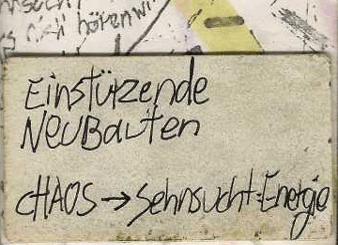 hören wi
Einstürzende
NEUBauten
CHAOS → Sehnsucht=Energie